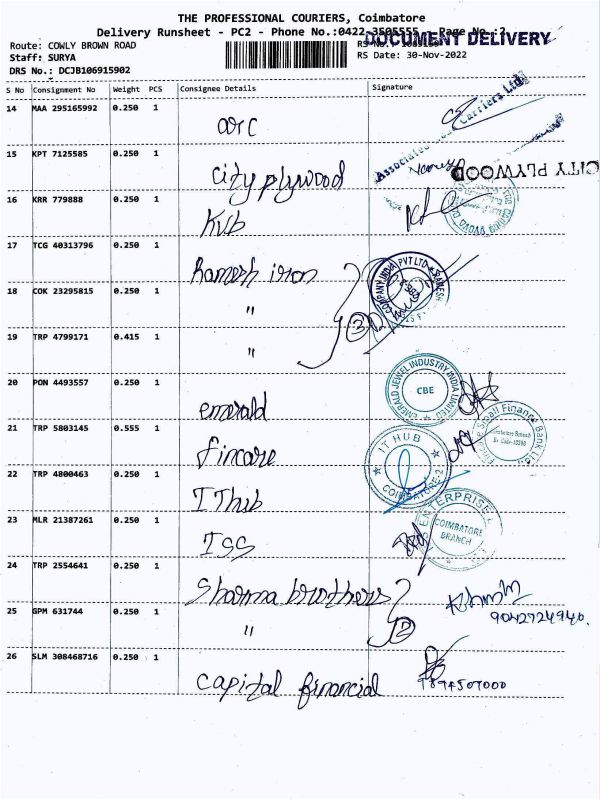 THE PROFESSIONAL COURIERS, Coimbatore
Delivery Runsheet - PC2 - Phone No.:0422-3505555 Page No.:2
DOCUMENT DELIVERY
Route: COWLY BROWN ROAD
Staff: SURYA
RS Date: 30-Nov-2022
DRS No.: DCJB106915902
S No Consignment No Weight PCS Consignee Details Signature
14 MAA 295165992 0.250 1
arc
Associated Carriers Ltd.
15 KPT 7125585 0.250 1
city plywood
CITY PLYWOOD
16 KRR 779888 0.250 1
KVB
17 TCG 40313796 0.250 1
Ramesh iron
18 COK 23295815 0.250 1
"
3
COMPANY INDIA PVT LTD ★ RAMESH
19 TRP 4799171 0.415 1
"
20 PON 4493557 0.250 1
emerald
EMERALD JEWEL INDUSTRY INDIA LIMITED
CBE
21 TRP 5803145 0.555 1
fincare
Fincare Small Finance Bank Ltd.
22 TRP 4800463 0.250 1
IT hub
★ IT HUB ★
COIMBATORE-2
23 MLR 21387261 0.250 1
ISS
ENTERPRISE
COIMBATORE
BRANCH
24 TRP 2554641 0.250 1
Sharma brothers
25 GPM 631744 0.250 1
"
2
9042724940.
26 SLM 308468716 0.250 1
capital financial
9894507000